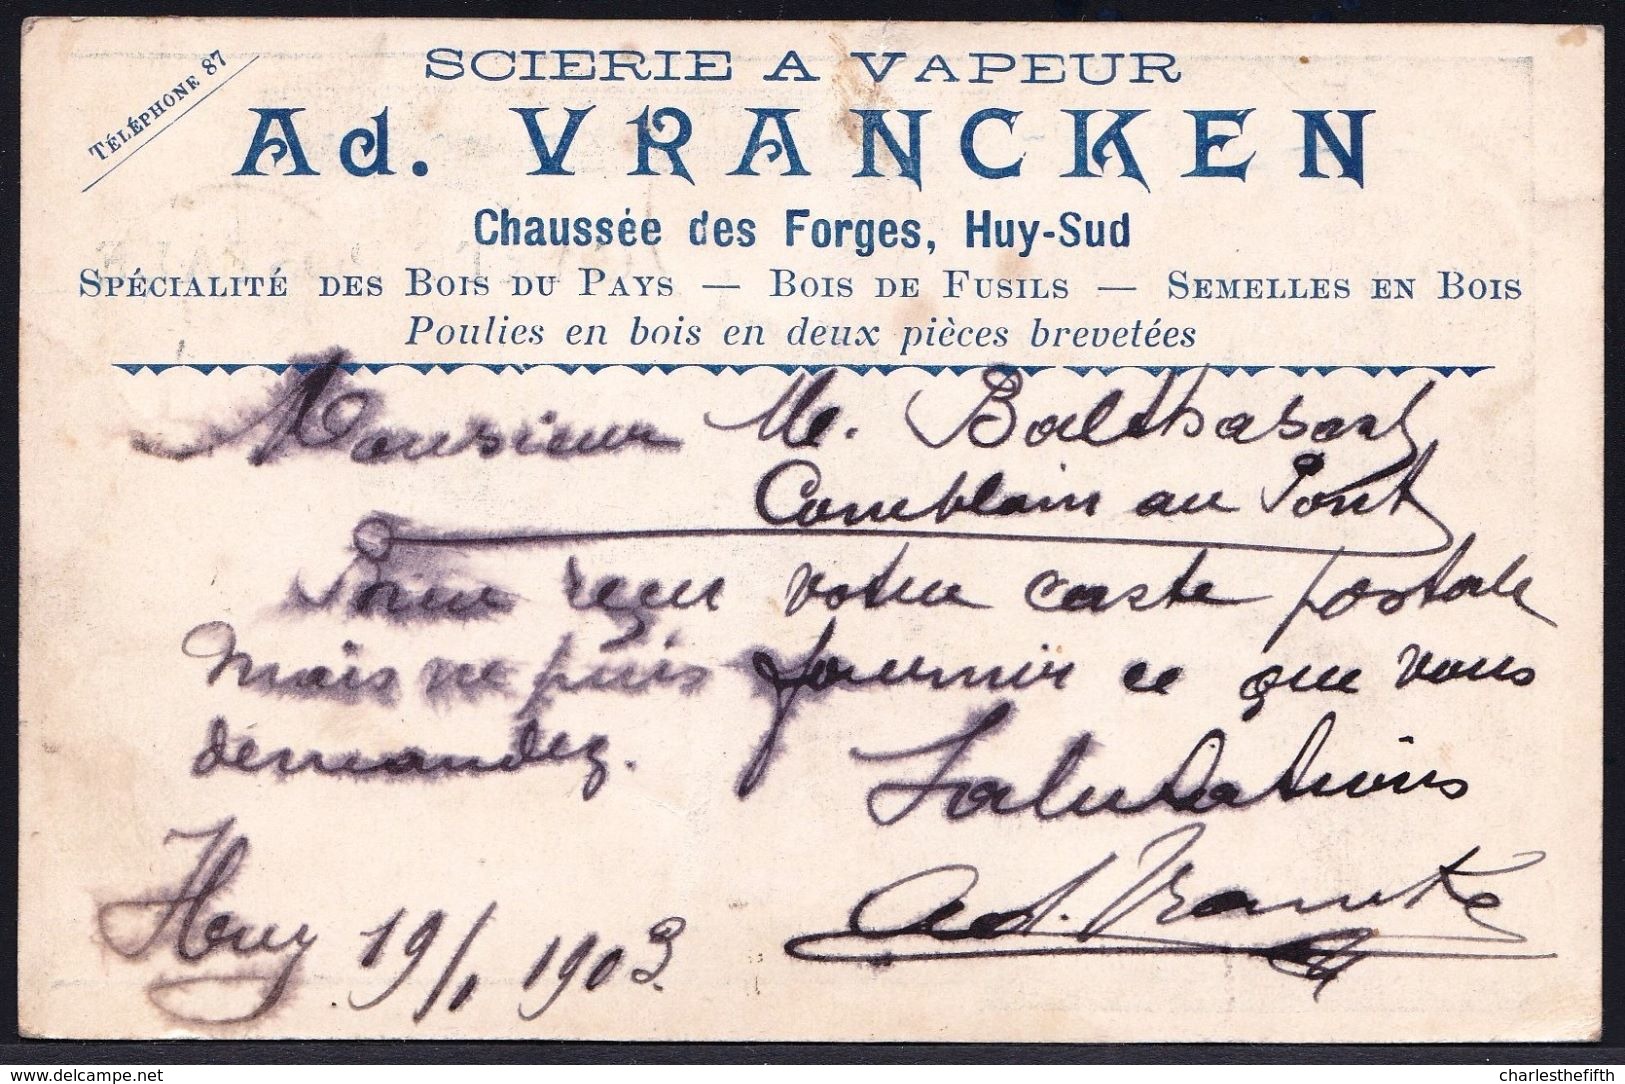 TÉLÉPHONE 87
SCIERIE A VAPEUR
Ad. VRANCKEN
Chaussée des Forges, Huy-Sud
SPÉCIALITÉ DES BOIS DU PAYS — BOIS DE FUSILS — SEMELLES EN BOIS
Poulies en bois en deux pièces brevetées
Monsieur M. Balthasart
Comblain au Pont
reçu votre carte postale
mais ne puis fournir ce que vous
demandez.
Salutations
Ad. Vrancken
Huy 19/1 1903.
delcampe.net
charlesthefifth